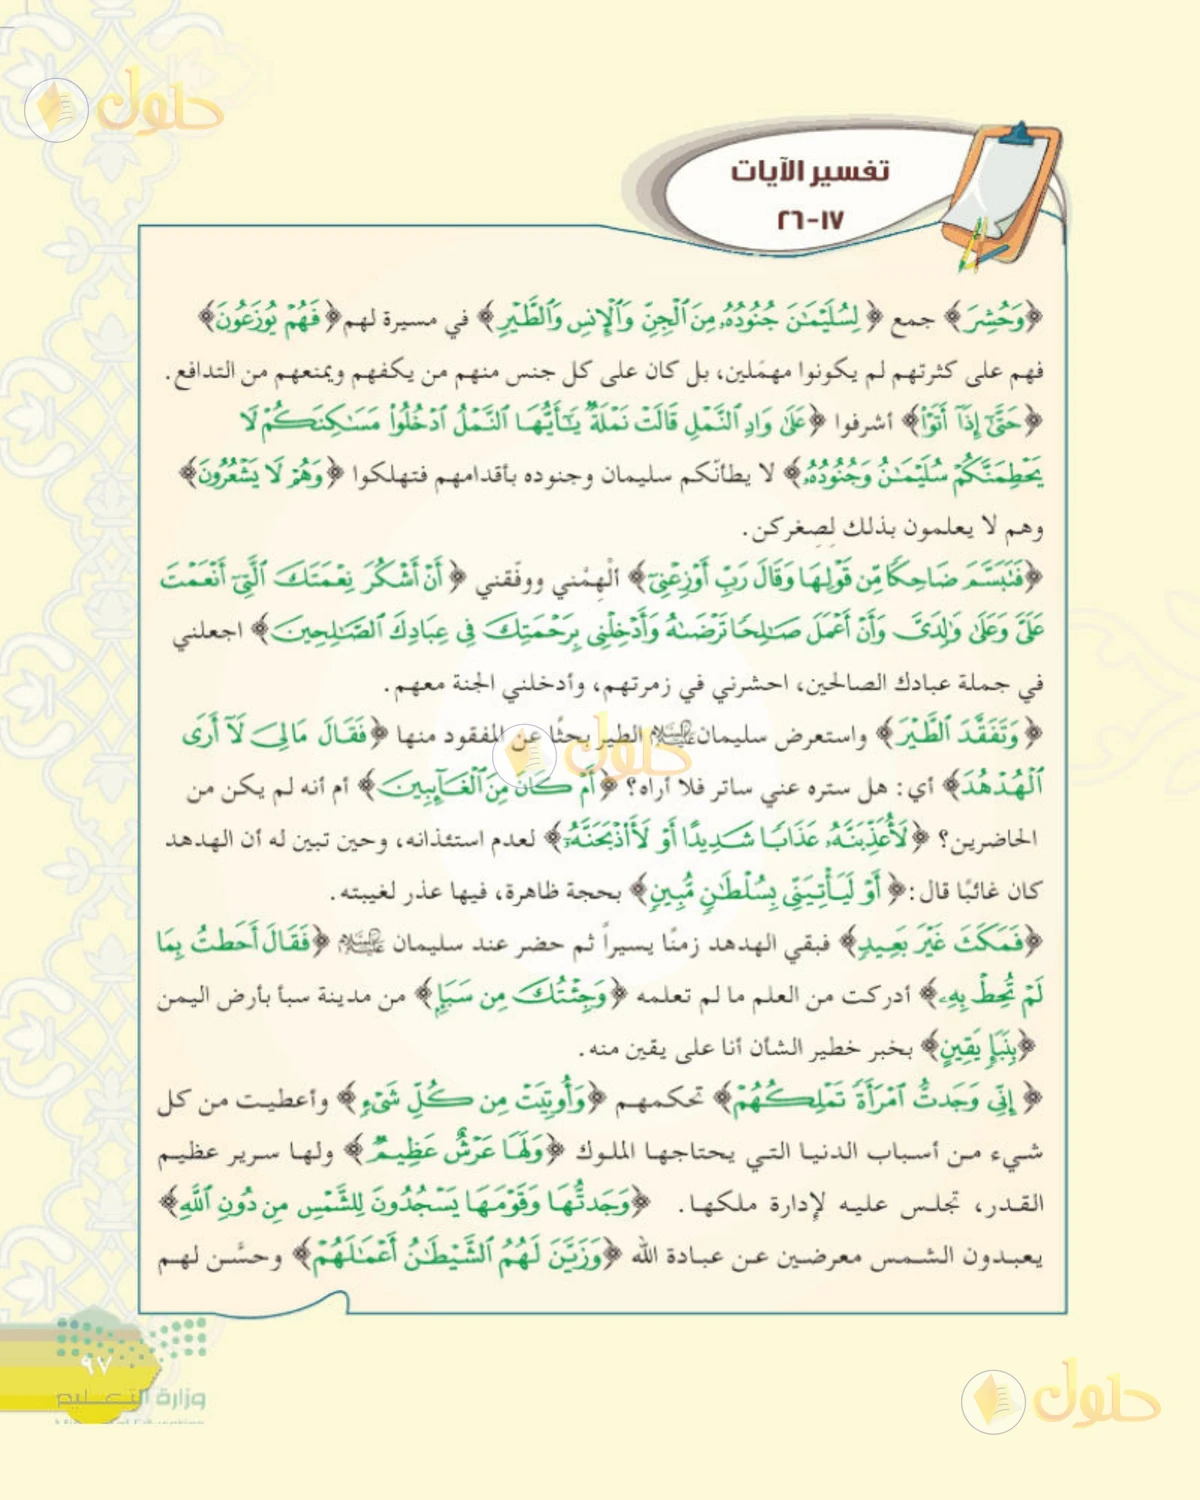 حلول
تفسير الآيات
١٧-٢٦
﴿وَحُشِرَ﴾ جمع ﴿لِسُلَيْمَٰنَ جُنُودُهُۥ مِنَ ٱلْجِنِّ وَٱلْإِنسِ وَٱلطَّيْرِ﴾ في مسيرة لهم ﴿فَهُمْ يُوزَعُونَ﴾
فهم على كثرتهم لم يكونوا مهمَلين، بل كان على كل جنس منهم من يكفهم ويمنعهم من التدافع.
﴿حَتَّىٰٓ إِذَآ أَتَوْا۟﴾ أشرفوا ﴿عَلَىٰ وَادِ ٱلنَّمْلِ قَالَتْ نَمْلَةٌ يَٰٓأَيُّهَا ٱلنَّمْلُ ٱدْخُلُوا۟ مَسَٰكِنَكُمْ لَا
يَحْطِمَنَّكُمْ سُلَيْمَٰنُ وَجُنُودُهُۥ﴾ لا يطأنّكم سليمان وجنوده بأقدامهم فتهلكوا ﴿وَهُمْ لَا يَشْعُرُونَ﴾
وهم لا يعلمون بذلك لِصِغركن.
﴿فَتَبَسَّمَ ضَاحِكًا مِّن قَوْلِهَا وَقَالَ رَبِّ أَوْزِعْنِىٓ﴾ ألْهِمْني ووفّقني ﴿أَنْ أَشْكُرَ نِعْمَتَكَ ٱلَّتِىٓ أَنْعَمْتَ
عَلَىَّ وَعَلَىٰ وَٰلِدَىَّ وَأَنْ أَعْمَلَ صَٰلِحًا تَرْضَىٰهُ وَأَدْخِلْنِى بِرَحْمَتِكَ فِى عِبَادِكَ ٱلصَّٰلِحِينَ﴾ اجعلني
في جملة عبادك الصالحين، احشرني في زمرتهم، وأدخلني الجنة معهم.
﴿وَتَفَقَّدَ ٱلطَّيْرَ﴾ واستعرض سليمان عليه السلام الطير بحثًا عن المفقود منها ﴿فَقَالَ مَالِىَ لَآ أَرَى
ٱلْهُدْهُدَ﴾ أي: هل ستره عني ساتر فلا أراه؟ ﴿أَمْ كَانَ مِنَ ٱلْغَآئِبِينَ﴾ أم أنه لم يكن من
الحاضرين؟ ﴿لَأُعَذِّبَنَّهُۥ عَذَابًا شَدِيدًا أَوْ لَأَا۟ذْبَحَنَّهُۥٓ﴾ لعدم استئذانه، وحين تبين له أن الهدهد
كان غائبًا قال: ﴿أَوْ لَيَأْتِيَنِّى بِسُلْطَٰنٍ مُّبِينٍ﴾ بحجة ظاهرة، فيها عذر لغيبته.
﴿فَمَكَثَ غَيْرَ بَعِيدٍ﴾ فبقي الهدهد زمنًا يسيراً ثم حضر عند سليمان عليه السلام ﴿فَقَالَ أَحَطتُ بِمَا
لَمْ تُحِطْ بِهِۦ﴾ أدركت من العلم ما لم تعلمه ﴿وَجِئْتُكَ مِن سَبَإٍ﴾ من مدينة سبأ بأرض اليمن
﴿بِنَبَإٍ يَقِينٍ﴾ بخبر خطير الشأن أنا على يقين منه.
﴿إِنِّى وَجَدتُّ ٱمْرَأَةً تَمْلِكُهُمْ﴾ تحكمهم ﴿وَأُوتِيَتْ مِن كُلِّ شَىْءٍ﴾ وأعطيت من كل
شيء من أسباب الدنيا التي يحتاجها الملوك ﴿وَلَهَا عَرْشٌ عَظِيمٌ﴾ ولها سرير عظيم
القدر، تجلس عليه لإدارة ملكها. ﴿وَجَدتُّهَا وَقَوْمَهَا يَسْجُدُونَ لِلشَّمْسِ مِن دُونِ ٱللَّهِ﴾
يعبدون الشمس معرضين عن عبادة الله ﴿وَزَيَّنَ لَهُمُ ٱلشَّيْطَٰنُ أَعْمَٰلَهُمْ﴾ وحسَّن لهم
حلول
٩٧
وزارة التعليم
حلول